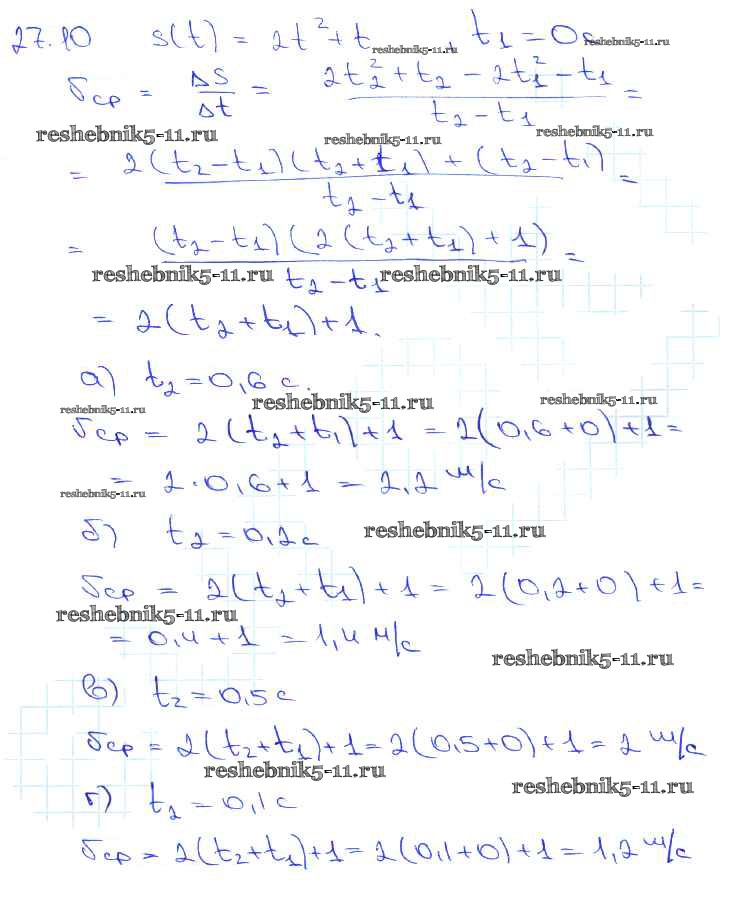 27.10 s(t) = 2t² + t, t₁ = 0s
reshebnik5-11.ru reshebnik5-11.ru
υср = ΔS/Δt = (2t₂² + t₂ - 2t₁² - t₁)/(t₂ - t₁) =
reshebnik5-11.ru reshebnik5-11.ru reshebnik5-11.ru
= (2(t₂-t₁)(t₂+t₁) + (t₂-t₁))/(t₂-t₁) =
= ((t₂-t₁)(2(t₂+t₁)+1))/(t₂-t₁) =
reshebnik5-11.ru reshebnik5-11.ru
= 2(t₂+t₁)+1.
а) t₂=0,6 с.
reshebnik5-11.ru reshebnik5-11.ru reshebnik5-11.ru
υср = 2(t₂+t₁)+1 = 2(0,6+0)+1=
= 2·0,6+1 = 2,2 м/с
reshebnik5-11.ru
б) t₂=0,2с reshebnik5-11.ru
υср = 2(t₂+t₁)+1 = 2(0,2+0)+1=
reshebnik5-11.ru
= 0,4+1 = 1,4 м/с
reshebnik5-11.ru
в) t₂=0,5 с
υср = 2(t₂+t₁)+1=2(0,5+0)+1=2 м/с
reshebnik5-11.ru reshebnik5-11.ru
г) t₂=0,1с
υср = 2(t₂+t₁)+1=2(0,1+0)+1=1,2 м/с